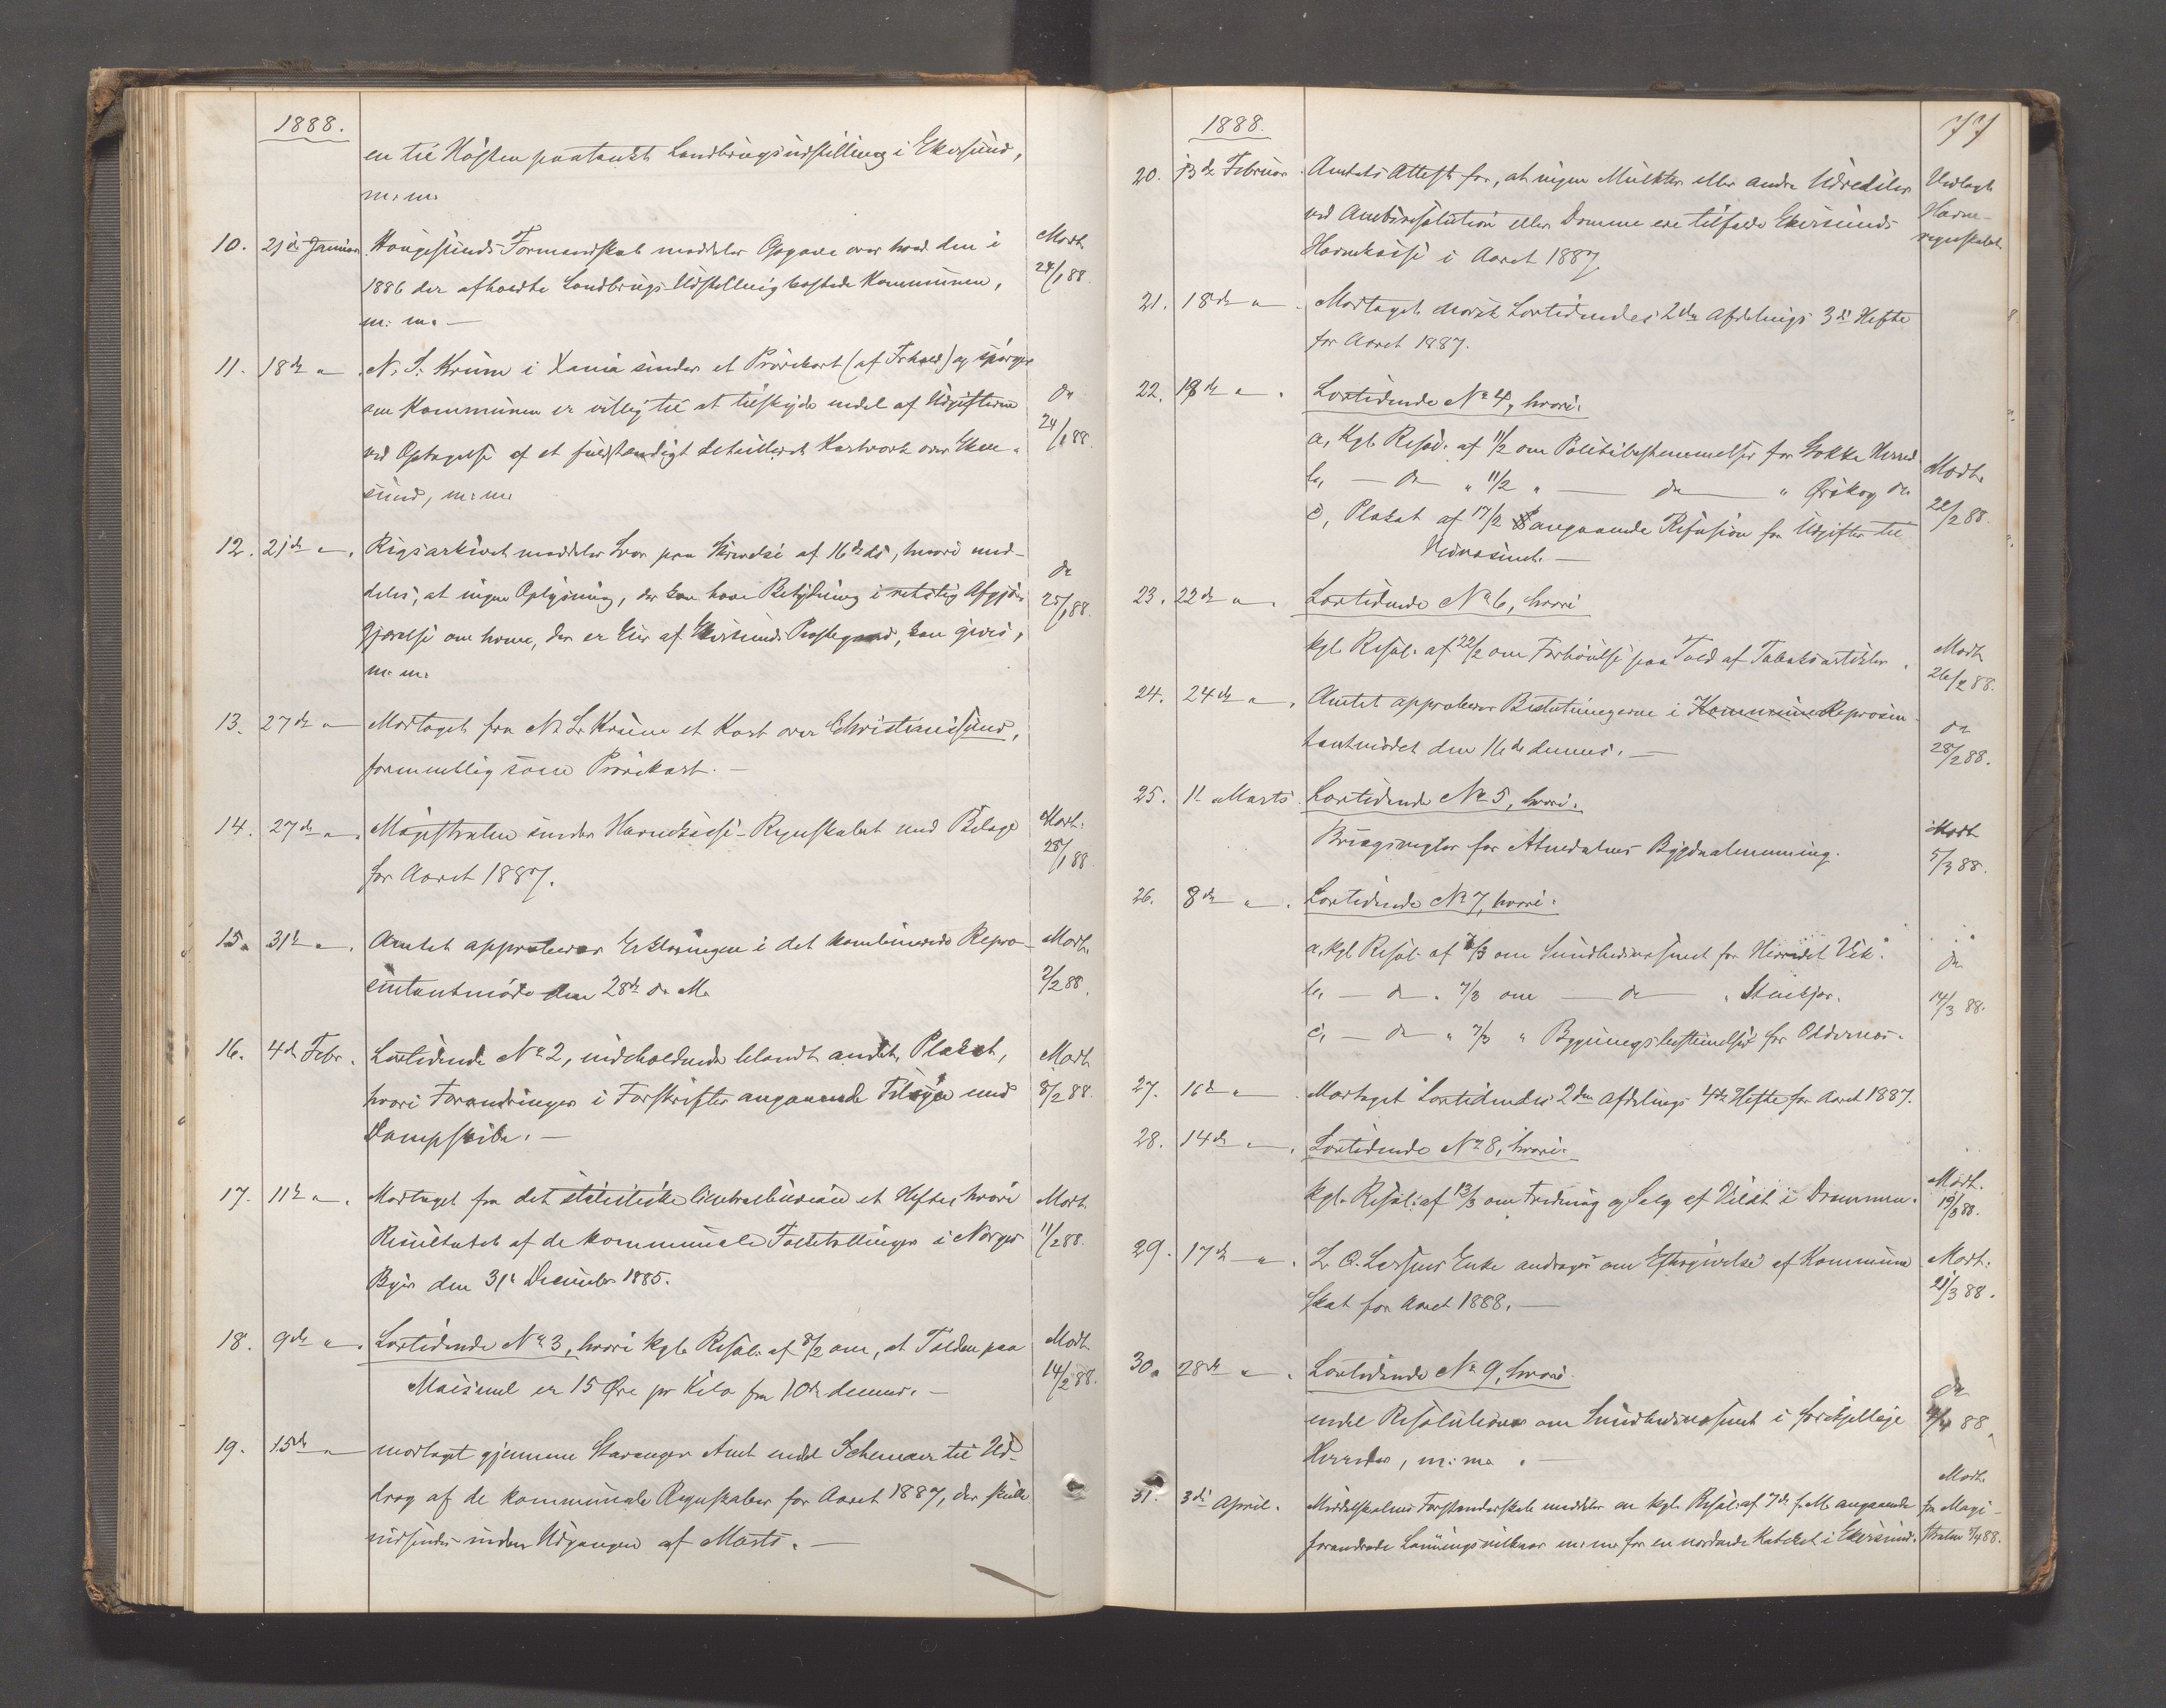 1888.
en til Høsten paatænkt Landbrugsudstilling i Ekersund,
m. m.
10. 21de Januar. Haugesunds Formandskab meddeler Opgave over hvad den i Modt.
1886 der afholdte Landbrugs-Udstilling kostede Kommunen, 24/1 88.
m. m. —
11. 18de " N. S. Krum i Xania sender et Prøvekart (af Frhald) og spørger
om Kommunen er villig til at tilskyde endel af Udgifterne do
ved Optagelse af et fuldstændigt detailleret Kartværk over Eker- 24/1 88.
sund, m. m.
12. 21de " Rigsarkivet meddeler Svar paa Skrivelse af 16de ds, hvori med-
deles, at ingen Oplysning, der kan have Betydning i retslig Afgjø- do
gjørelse om hvem, der er Eier af Ekersunds Præstegaard, kan gives, 25/1 88.
m. m.
13. 27de " Modtaget fra N. S. Krum et Kart over Christianssund,
formentlig som Prøvekart. —
14. 27de " Magistraten sender Havnekasse-Regnskabet med Bilage Modt.
for Aaret 1887. 28/1 88.
15. 31te " Amtet approberer Erklæringen i det kombinerede Repræ- Modt.
sentantmøde den 28de d. M. 2/2 88.
16. 4de Febr. Lovtidende No 2, indeholdende blandt andet, Plakat, Modt.
hvori Forandringer i Forskrifter angaaende Tilsyn med 8/2 88.
Dampskibe. —
17. 11te " Modtaget fra det statistiske Centralbureau et Hefte, hvori Modt.
Resultatet af de kommunale Folketællinger i Norges 11/2 88.
Byer den 31te December 1885.
18. 9de " Lovtidende No 3, hvori kgl. Resol. af 8/2 om, at Tolden paa Modt.
Maismel er 15 Øre pr Kilo fra 10de dennes. — 14/2 88.
19. 15de " modtaget gjennem Stavanger Amt endel Schemaer til Ud-
drag af de kommunale Regnskaber for Aaret 1887, der skulle
indsendes inden Udgangen af Marts. —
1888. 77
20. 13de Februar. Amtets Attest for, at ingen Mulkter eller andre Udredsler Vedlagt
ved Amtsresolution eller Domme ere tilfaldt Ekersunds Havne-
Havnekasse i Aaret 1887. regnskabet
21. 18de " Modtaget norsk Lovtidendes 2den Afdelings 3die Hefte
for Aaret 1887.
22. 18de " Lovtidende No 4, hvori:
a, Kgl. Resol. af 11/2 om Politibestemmelser for Herred Modt.
b, — do " 11/2 " — do — " Ørskog do 22/2 88.
c, Plakat af 17/2 angaaende Refusion for Udgifter til

23. 22de " Lovtidende No 6, hvori
kgl. Resol. af 22/2 om Forhøielse paa Told af Tobaksartikler. Modt. 26/2 88.
24. 24de " Amtet approberer Beslutningerne i Kommune Repræsen- do
tantmødet den 16de dennes. — 28/2 88.
25. 1te Marts. Lovtidende No 5, hvori:
Brugsregler for Atnedalens Bygdealmenning. Modt. 5/3 88.
26. 8de " Lovtidende No 7, hvori:
a, kgl. Resol. af 7/3 om Sundhedsvæsenet for Herredet Vik.
b, — do " 7/3 om — do — " Stenkjær. do
c, — do " 7/3 " Bygningsbestemmelser for Oddernes. 14/3 88.
27. 16de " Modtaget Lovtidendes 2den Afdelings 4de Hefte for Aaret 1887.
28. 14de " Lovtidende No 8, hvori:
kgl. Resol. af 13/3 om Fredning og Salg af Vildt i Drammen. Modt. 19/3 88.
29. 17de " L. O. Larsens Enke andrager om Eftergivelse af Kommune Modt.
skat for Aaret 1888. — 21/3 88.
30. 28de " Lovtidende No 9, hvori
endel Resolutioner om Sundhedsvæsenet i forskjellige do 4/4 88.
Herreder, m. m. —
31. 3die April. Middelskolens Forstanderskab meddeler en kgl. Resol. af 7de f. M. angaaende Modt. fra Magi-
forandrede Lønningsvilkaar m. m. for en værdende Kateket i Ekersund. straten 7/4 88.